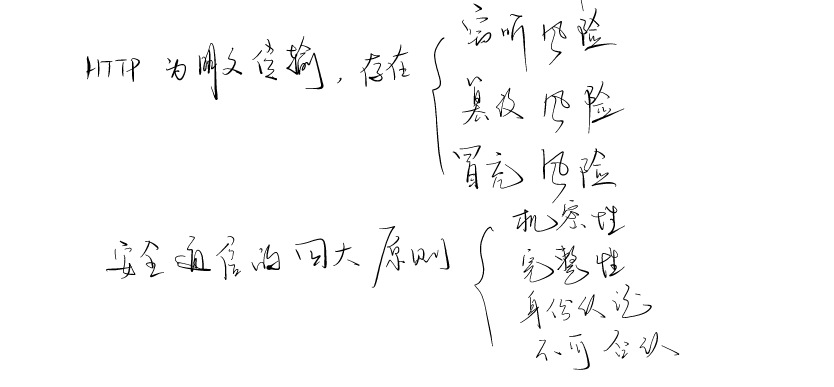 HTTP 为明文传输，存在
窃听风险
篡改风险
冒充风险
安全通信的四大原则
机密性
完整性
身份认证
不可否认